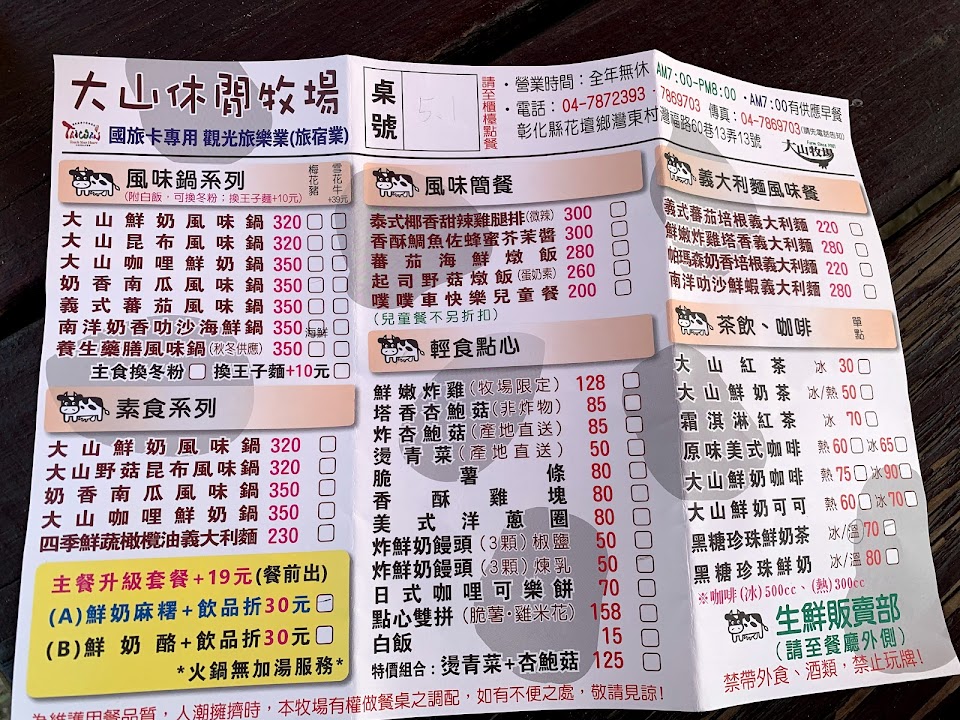 大山休閒牧場
國旅卡專用 觀光旅樂業(旅宿業)
桌號
5.1
請至櫃檯點餐
・營業時間：全年無休 AM7:00-PM8:00 ・AM7:00有供應早餐
・電話：04-7872393・7869703 傳真：04-7869703(請先電話告知)
彰化縣花壇鄉灣東村灣福路60巷13弄13號
大山牧場
風味鍋系列
(附白飯，可換冬粉；換王子麵+10元)
梅花豬
雪花牛+39元
大山鮮奶風味鍋 320
大山昆布風味鍋 320
大山咖哩鮮奶鍋 350
奶香南瓜風味鍋 350
義式蕃茄風味鍋 350
南洋奶香叻沙海鮮鍋 350 海鮮
養生藥膳風味鍋(秋冬供應) 350
主食換冬粉 換王子麵+10元
素食系列
大山鮮奶風味鍋 320
大山野菇昆布風味鍋 320
奶香南瓜風味鍋 350
大山咖哩鮮奶鍋 350
四季鮮蔬橄欖油義大利麵 230
主餐升級套餐+19元(餐前出)
(A)鮮奶麻糬+飲品折30元
(B)鮮奶酪+飲品折30元
*火鍋無加湯服務*
風味簡餐
泰式椰香甜辣雞腿排(微辣) 300
香酥鯛魚佐蜂蜜芥茉醬 300
蕃茄海鮮燉飯 280
起司野菇燉飯(蛋奶素) 260
噗噗車快樂兒童餐 200
(兒童餐不另折扣)
輕食點心
鮮嫩炸雞(牧場限定) 128
塔香杏鮑菇(非炸物) 85
炸杏鮑菇(產地直送) 85
燙青菜(產地直送) 50
脆薯條 80
香酥雞塊 80
美式洋蔥圈 80
炸鮮奶饅頭(3顆)椒鹽 50
炸鮮奶饅頭(3顆)煉乳 50
日式咖哩可樂餅 70
點心雙拼(脆薯·雞米花) 158
白飯 15
特價組合：燙青菜+杏鮑菇 125
義大利麵風味餐
義式蕃茄培根義大利麵 220
鮮嫩炸雞塔香義大利麵 280
帕瑪森奶香培根義大利麵 220
南洋叻沙鮮蝦義大利麵 280
茶飲、咖啡
單點
大山紅茶 冰 30
大山鮮奶茶 冰/熱 50
霜淇淋紅茶 冰 70
原味美式咖啡 熱 60 冰 65
大山鮮奶咖啡 熱 75 冰 90
大山鮮奶可可 熱 60 冰 70
黑糖珍珠鮮奶茶 冰/溫 70
黑糖珍珠鮮奶 冰/溫 80
※咖啡(冰)500cc、(熱)300cc
生鮮販賣部
(請至餐廳外側)
禁帶外食、酒類，禁止玩牌!
為維護用餐品質，人潮擁擠時，本牧場有權做餐桌之調配，如有不便之處，敬請見諒!